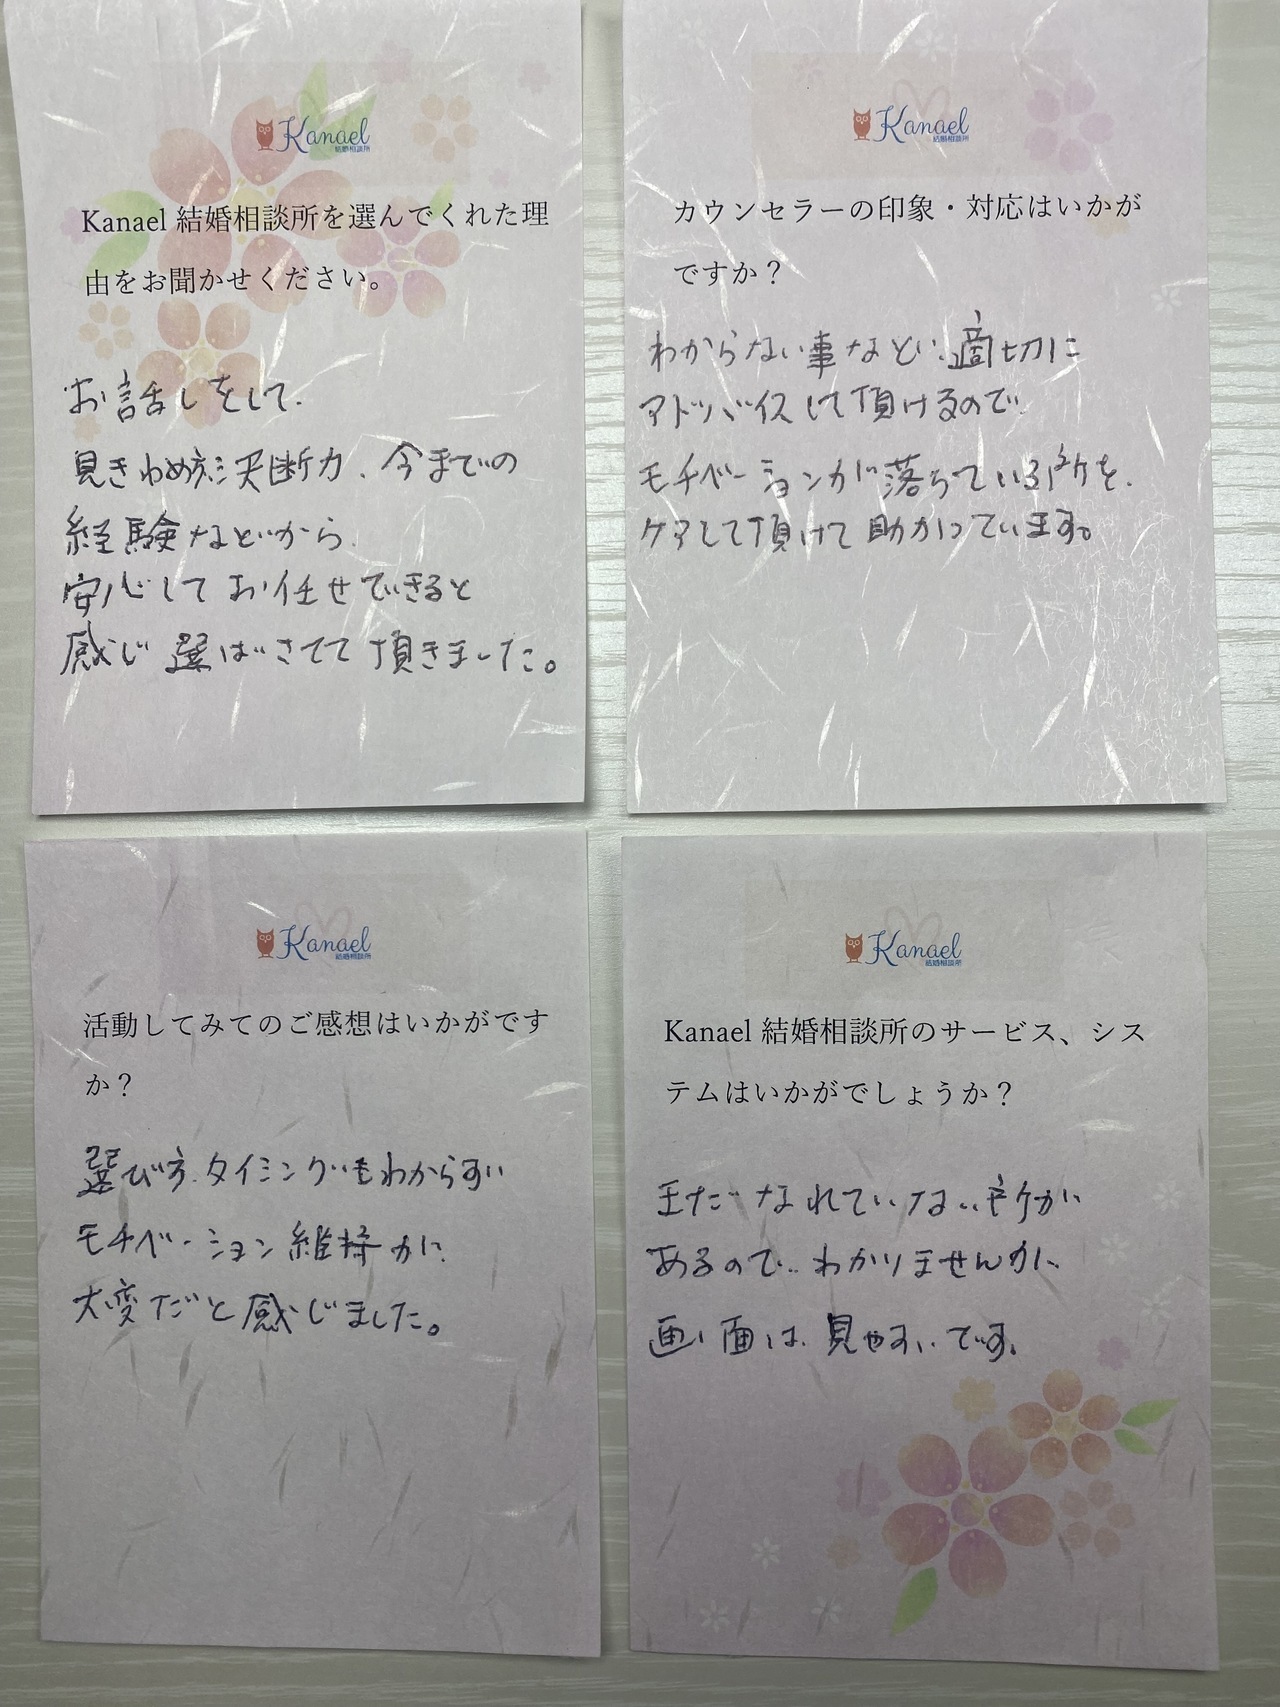 Kanael
結婚相談所
Kanael 結婚相談所を選んでくれた理
由をお聞かせください。
お話しをして、
見きわめる決断力、今までの
経験などから
安心してお任せできると
感じ 選ばさせて頂きました。
Kanael
結婚相談所
カウンセラーの印象・対応はいかが
ですか？
わからない事など、適切に
アドバイスして頂けるので
モチベーションが落ちている時を、
ケアして頂けて助かっています。
Kanael
結婚相談所
活動してみてのご感想はいかがです
か？
選び方、タイミングもわからずい
モチベーション維持がに
大変だと感じました。
Kanael
結婚相談所
Kanael 結婚相談所のサービス、シス
テムはいかがでしょうか？
まだ なれていない所が
あるので、わかりませんが、
画面は 見やすいです。